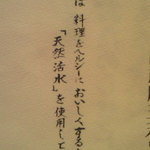 は 料理をヘルシーにおいしくする
「天然活水」を使用して